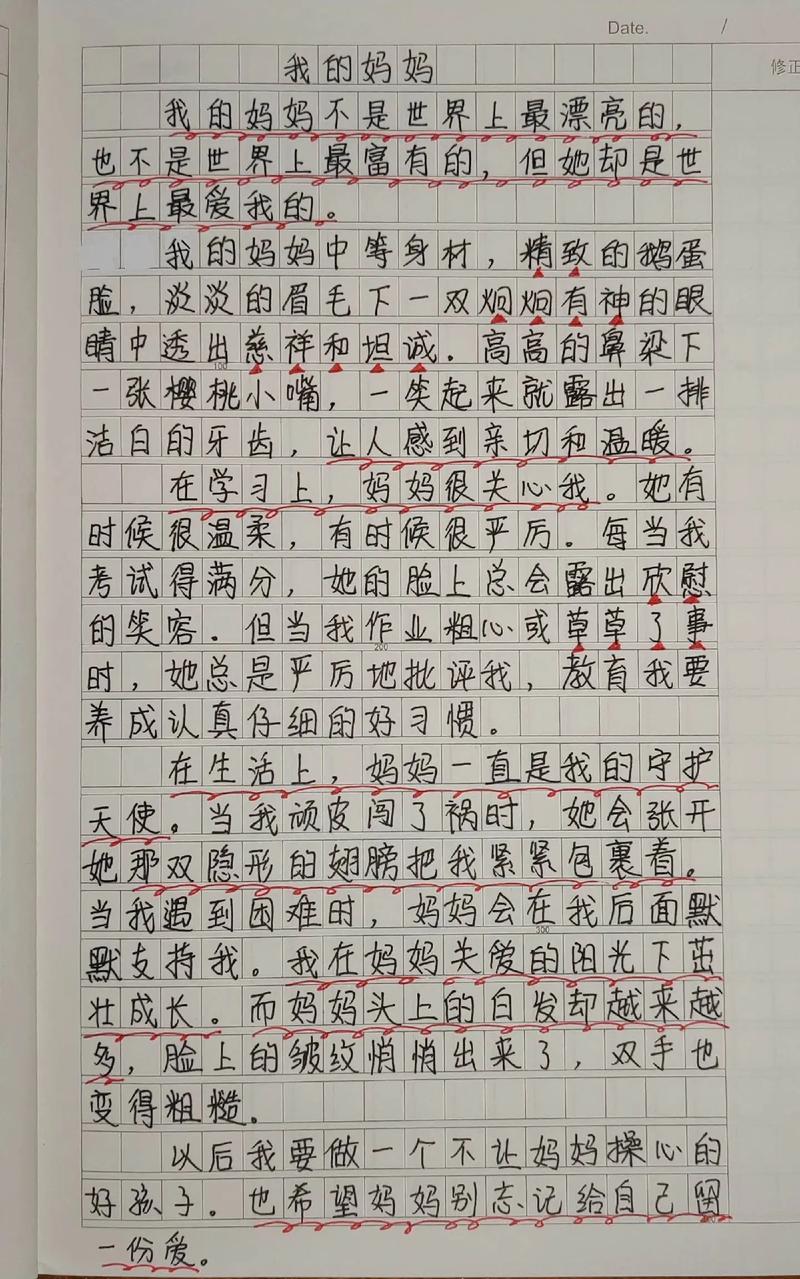 Date. /
修正
我的妈妈
我的妈妈不是世界上最漂亮的，
也不是世界上最富有的，但她却是世
界上最爱我的。
我的妈妈中等身材，精致的鹅蛋
脸，淡淡的眉毛下一双炯炯有神的眼
睛中透出慈祥和坦诚。高高的鼻梁下
100
一张樱桃小嘴，一笑起来就露出一排
洁白的牙齿，让人感到亲切和温暖。
在学习上，妈妈很关心我。她有
时候很温柔，有时候很严厉。每当我
考试得满分，她的脸上总会露出欣慰
的笑容。但当我作业粗心或草草了事
200
时，她总是严厉地批评我，教育我要
养成认真仔细的好习惯。
在生活上，妈妈一直是我的守护
天使。当我顽皮闯了祸时，她会张开
她那双隐形的翅膀把我紧紧包裹着。
当我遇到困难时，妈妈会在我后面默
300
默支持我。我在妈妈关爱的阳光下茁
壮成长。而妈妈头上的白发却越来越
多，脸上的皱纹悄悄出来了，双手也
变得粗糙。
以后我要做一个不让妈妈操心的
好孩子。也希望妈妈别忘记给自己留
一份爱。